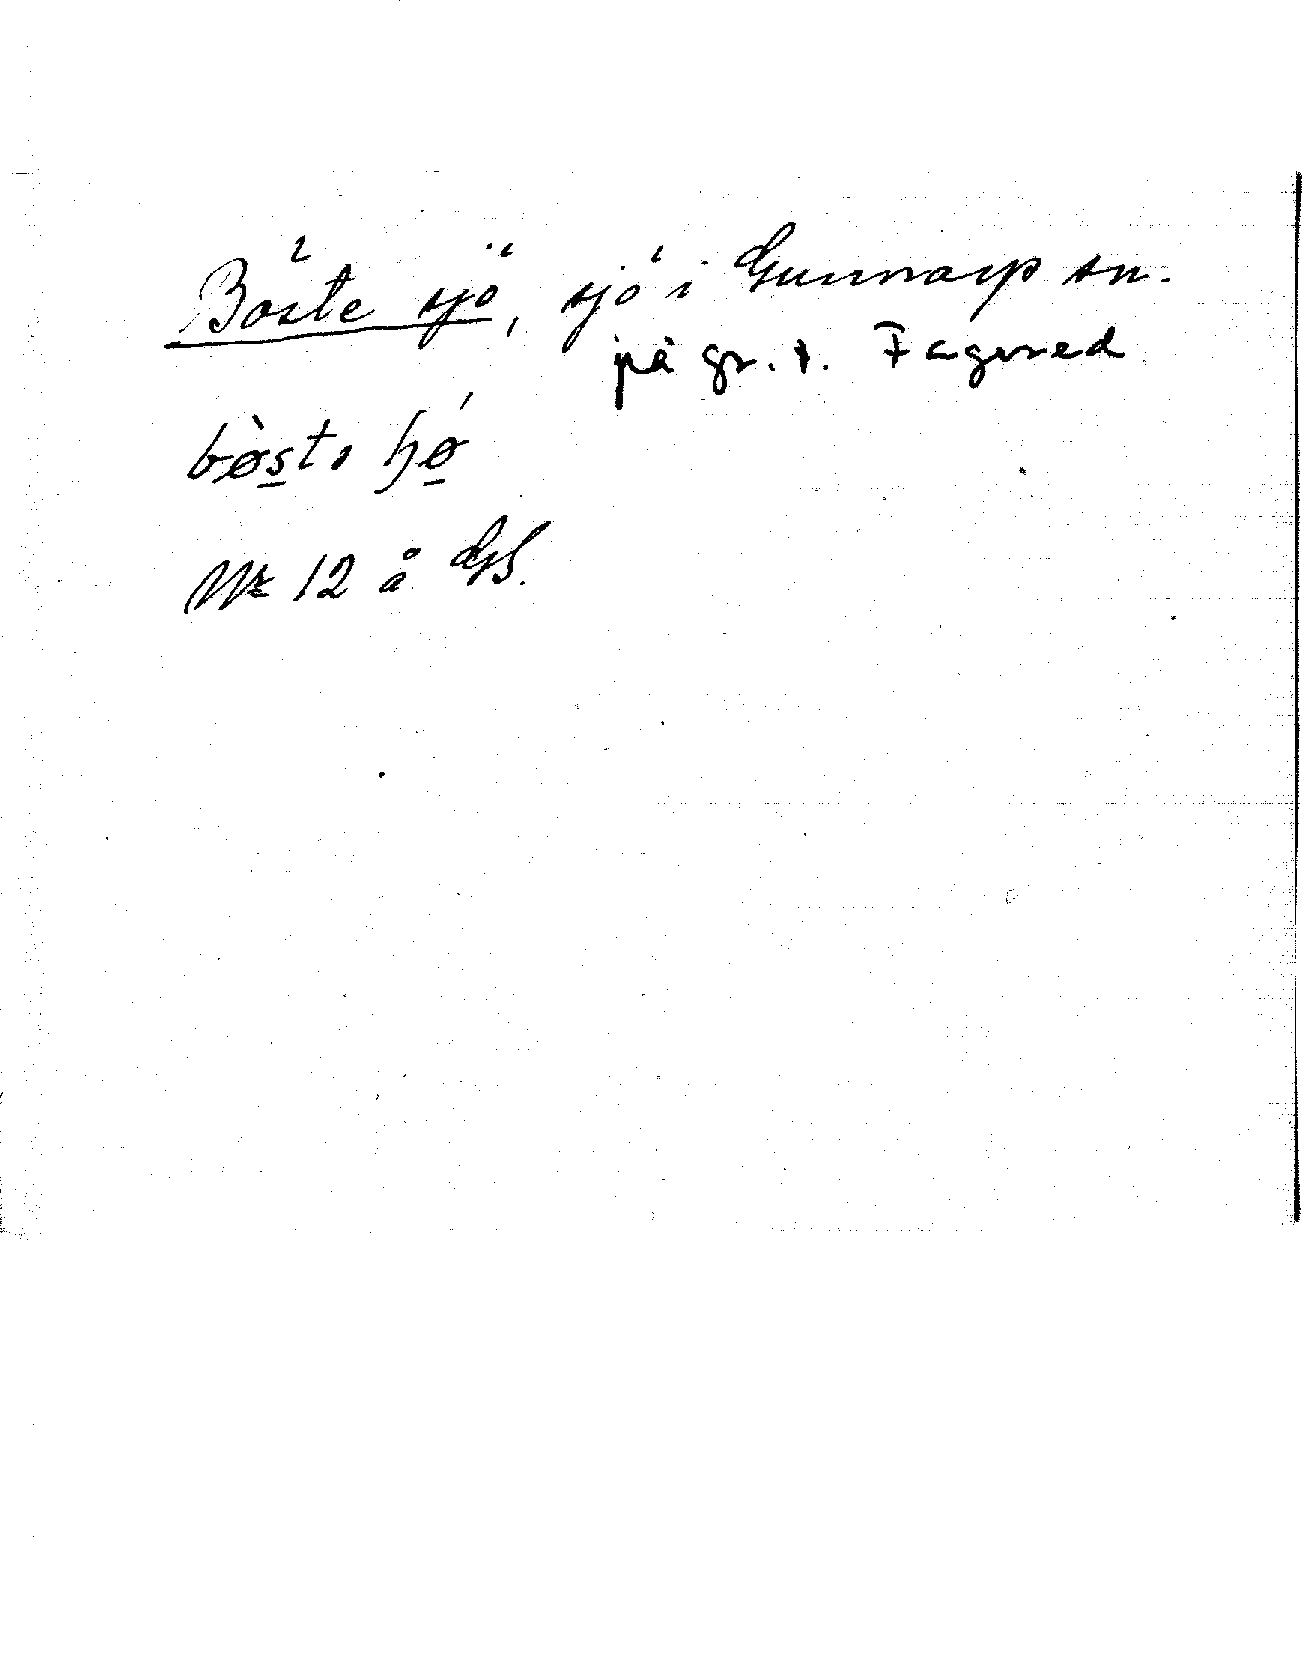 Böste sjö, sjö i Gunnarp sn.
på gr. t. Fagered
bø̀s̠tə ɧǿ̠
Nr 12 å